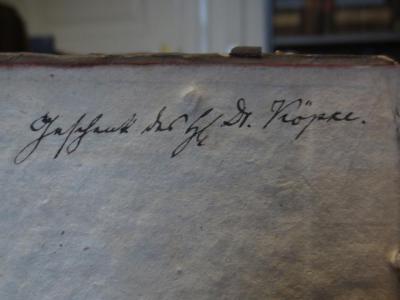 Geschenk des H. Dr. Köpke.